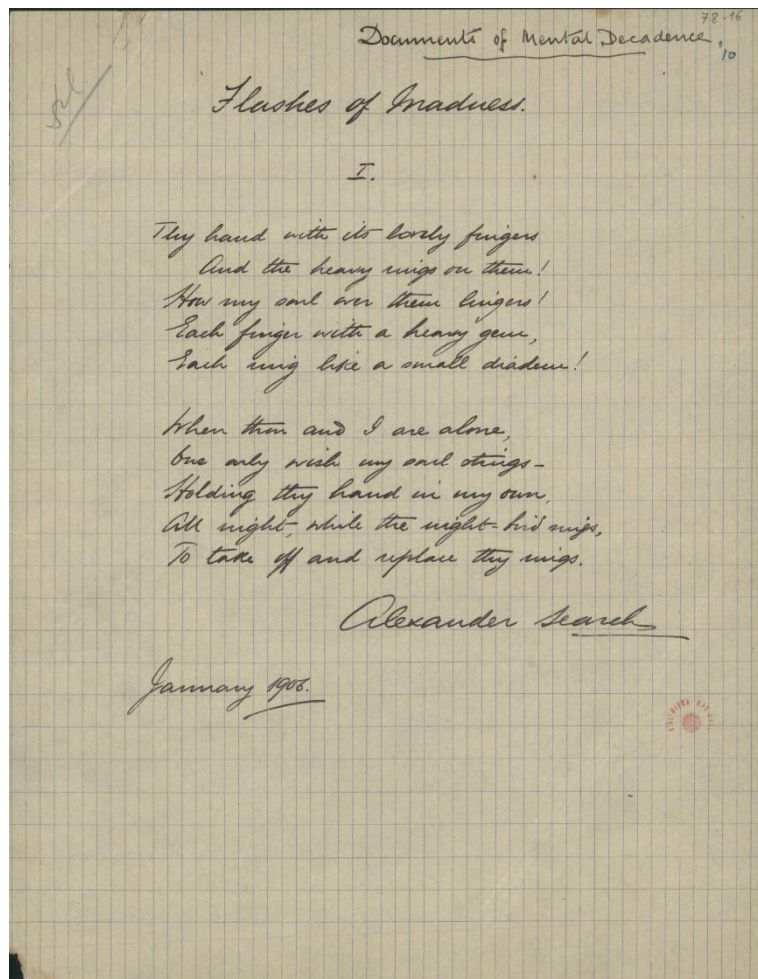 78-16
Documents of Mental Decadence,
10
Flashes of Madness.
I.
Thy hand with its lovely fingers
And the heavy rings on them!
How my soul over them lingers!
Each finger with a heavy gem,
Each ring like a small diadem!
When thou and I are alone,
One only wish my soul stings –
Holding thy hand in my own,
All night, while the night-bird sings,
To take off and replace thy rings.
Alexander Search
January 1906.